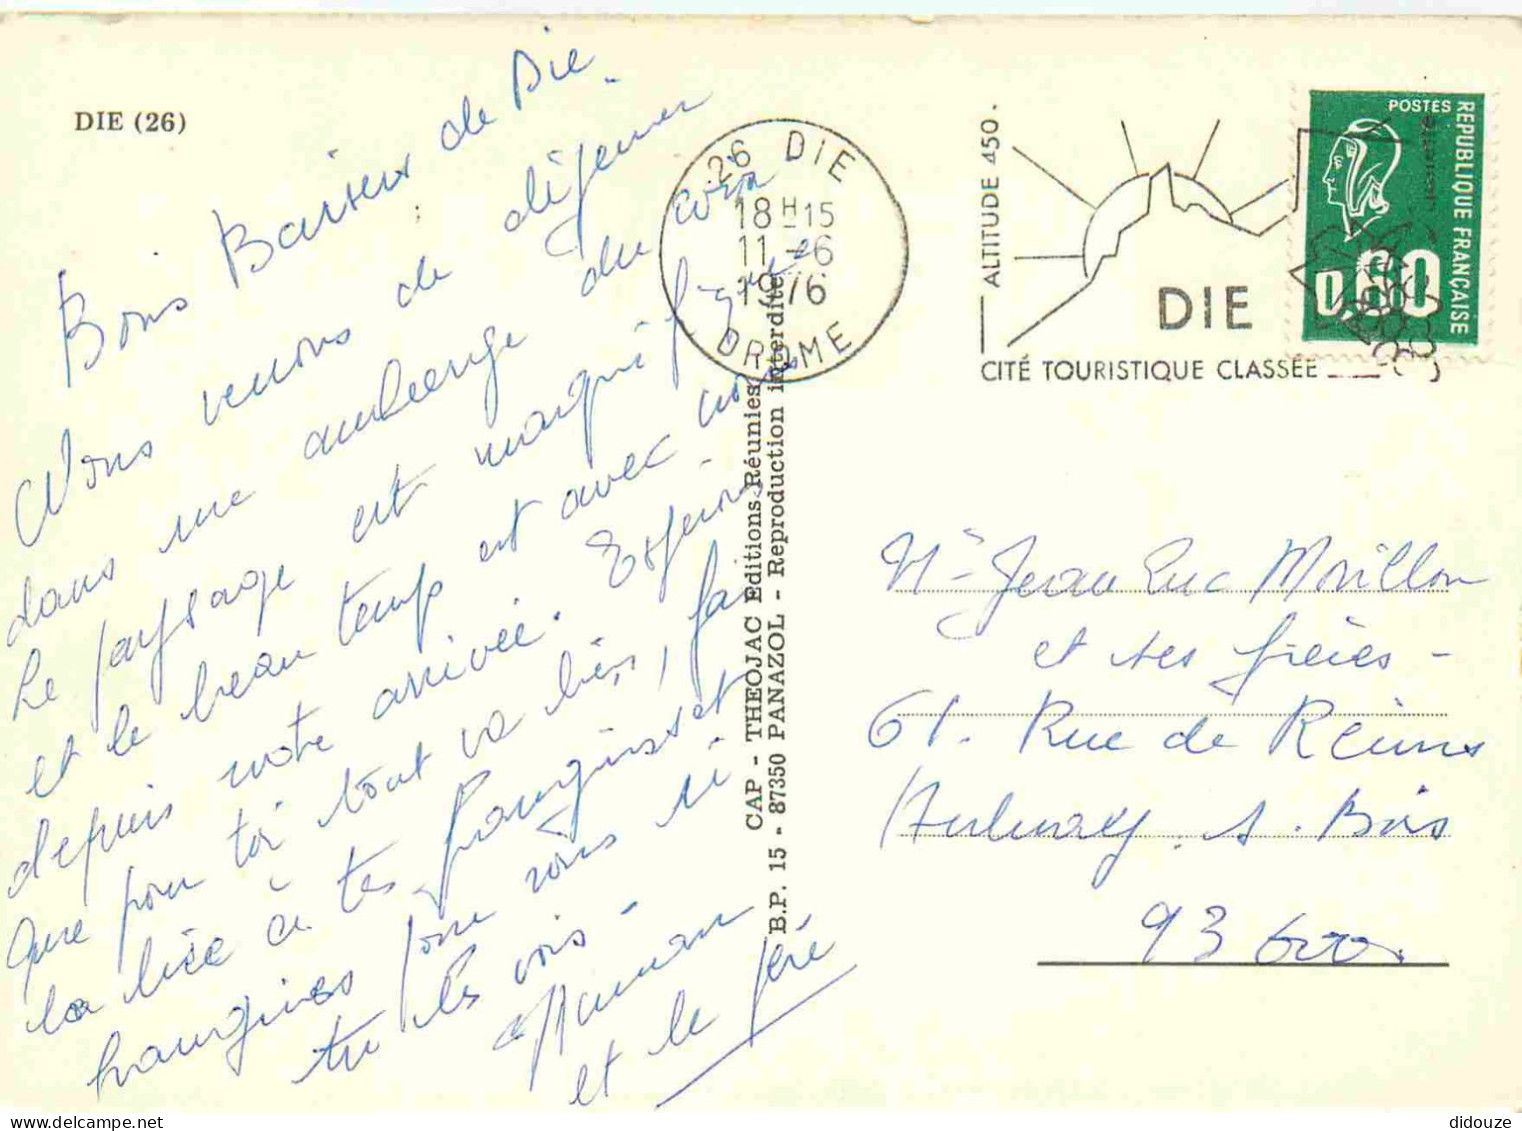 DIE (26)
Bons Baisers de Die.
Nous venons de déjeuner
dans une auberge du coin
Le paysage est magnifique
et le beau temps est avec nous
depuis notre arrivée. Espérons
que pour toi tout va bien, fais
la bise à tes frangins et
frangines pour nous si
tu les vois -
Maman
et le péré
CAP - THEOJAC Editions Réunies
B.P. 15 - 87350 PANAZOL - Reproduction interdite
26 DIE
18 H 15
11 - 6
1976
DROME
ALTITUDE 450.
DIE
CITÉ TOURISTIQUE CLASSÉE
POSTES
REPUBLIQUE FRANÇAISE
0,60
Mr Jean Luc Morillon
et ses frères -
61. Rue de Reims
Aulnay. s. Bois
93600.
delcampe.net
didouze